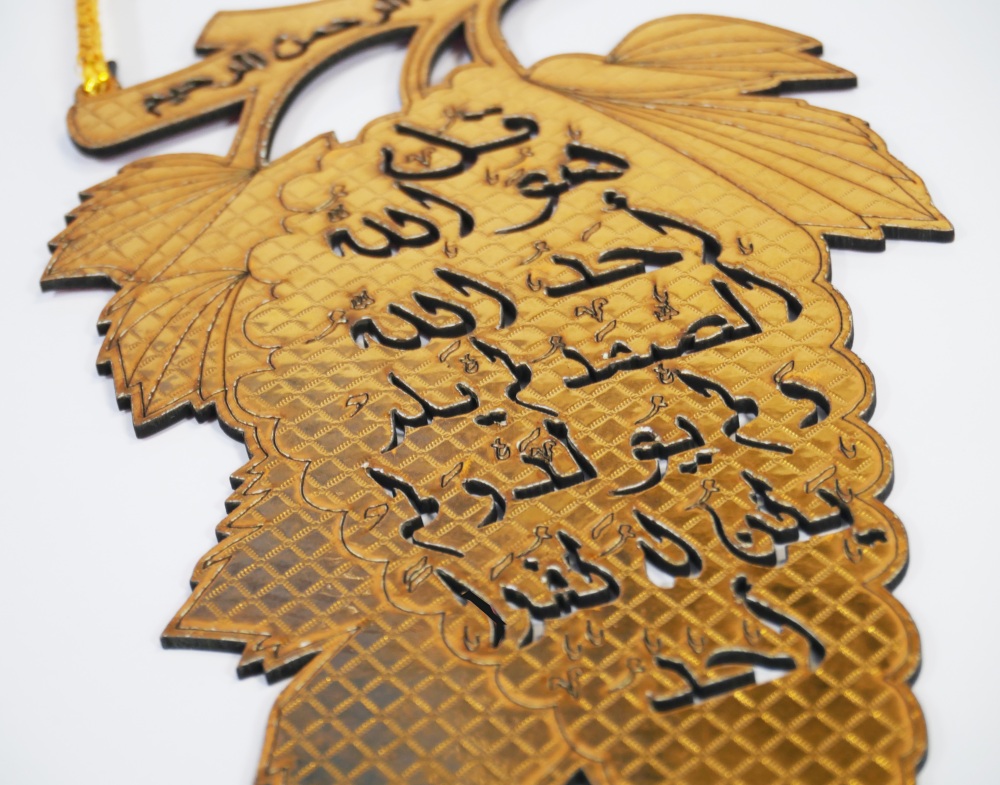 الرحمن الرحيم
قل
هو الله
أحد الله
الصمد لم يلد
ولم يولد ولم
يكن له كفوا
أحد